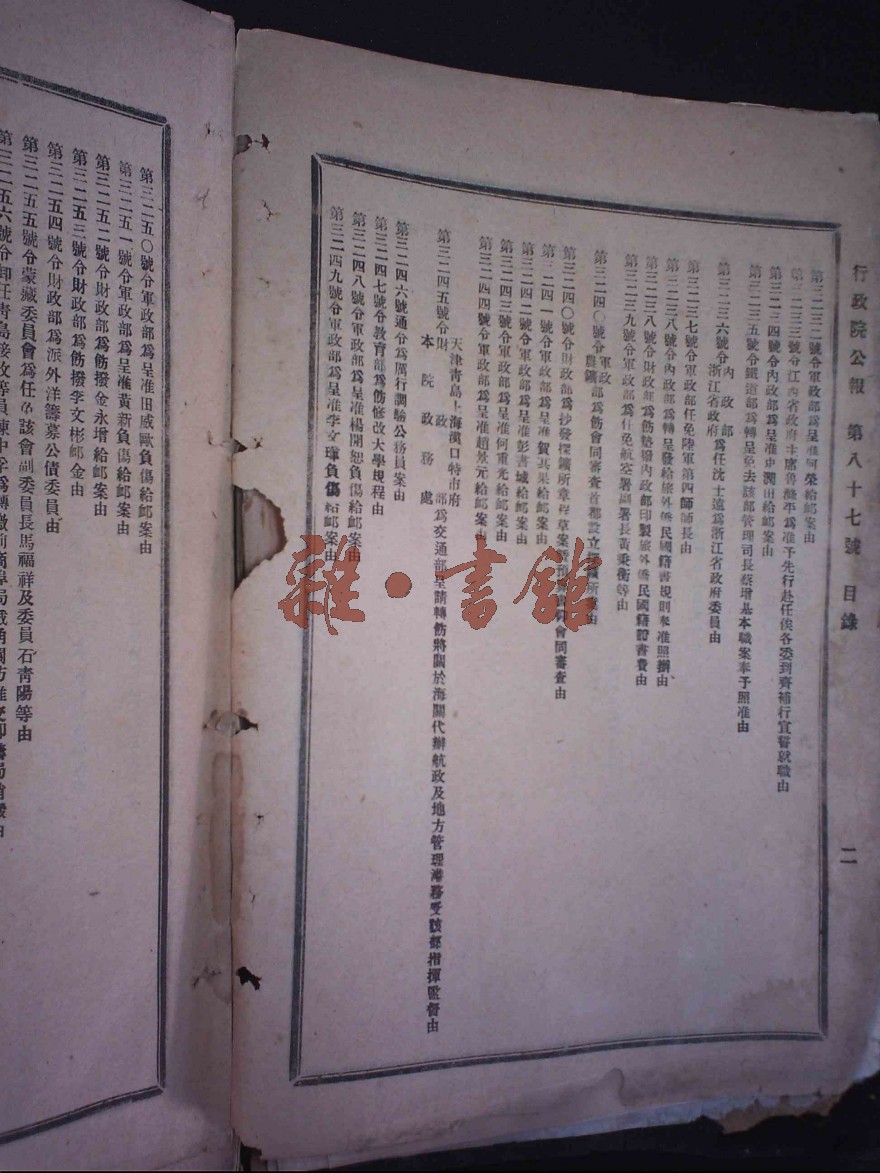 行政院公報 第八十七號 目錄
二
第三二三二號令軍政部爲呈准何榮給䘏案由
第三二三三號令江西省政府主席魯滌平爲准予先行赴任俟各委到齊補行宣誓就職由
第三二三四號令內政部爲呈准 潤田給䘏案由
第三二三五號令鐵道部爲轉呈免去該部管理司長蔡增基本職案奉予照准由
第三二三六號令內政部浙江省政府爲任沈士遠爲浙江省政府委員由
第三二三七號令軍政部任免陸軍第四師師長由
第三二三八號令內政部爲轉呈發給旅外僑民國籍 書規則奉准照辦由
第三二三八號令財政部爲飭墊撥內政部印製旅外僑民國籍證書費由
第三二三九號令軍政部爲任免航空署副署長黃秉衡等由
第三二四〇號令軍政農鑛部爲飭會同審查首都設立 鑛所 由
第三二四〇號令財政部爲抄發探鑛所章程草案 預 會同審查由
第三二四一號令軍政部爲呈准賀其果給䘏案由
第三二四二號令軍政部爲呈准彭書城給䘏案由
第三二四三號令軍政部爲呈准何重光給䘏案由
第三二四四號令軍政部爲呈准趙景元給䘏案由
第三二四五號令財政部天津青島上海漢口特市府本院政務處爲交通部呈請轉飭將關於海關代辦航政及地方管理港務受該部指揮監督由
第三二四六號通令爲厲行調驗公務員案由
第三二四七號令教育部爲飭修改大學規程由
第三二四八號令軍政部爲呈准楊開恕負傷給䘏案由
第三二四九號令軍政部爲呈准李文璋負傷給䘏案由
第三二五〇號令軍政部爲呈准田威歐負傷給䘏案由
第三二五一號令軍政部爲呈准黃新負傷給䘏案由
第三二五二號令財政部爲飭撥金永增給䘏案由
第三二五三號令財政部爲飭撥李文彬䘏金由
第三二五四號令財政部爲派外洋籌募公債委員由
第三二五五號令蒙藏委員會爲任免該會副委員長馬福祥及委員石青陽等由
第三二五六號令卸任青島接收 員陳中孚爲轉繳前商
雜·書館